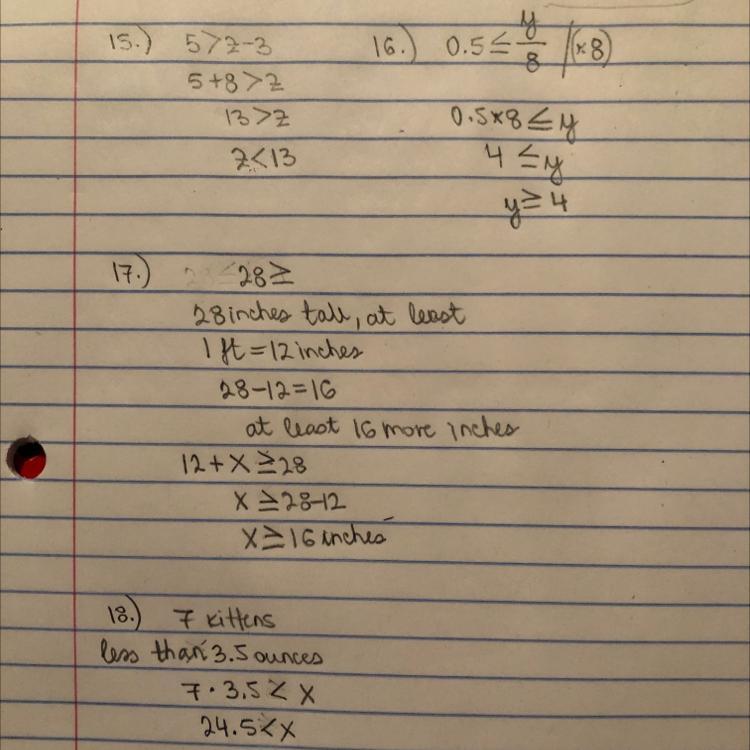 15.) 5>z-3
5+8>z
13>z
z<13
16.) 0.5≤y/8 /(×8)
0.5×8≤y
4≤y
y≥4
17.) 28≥
28 inches tall, at least
1 ft=12 inches
28-12=16
at least 16 more inches
12+x≥28
x≥28-12
x≥16 inches
18.) 7 kittens
less than 3.5 ounces
7·3.5<x
24.5<x